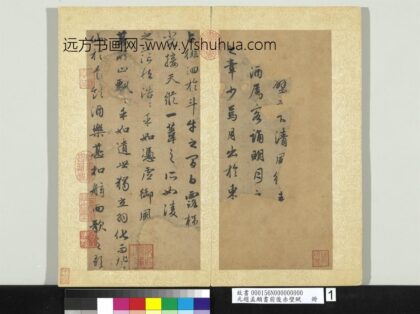 远方书画网-www.yfshuhua.com
壁之下清風徐來
酒屬客誦明月之
之章少焉月出於東
徘徊於斗牛之間白露橫
光接天縱一葦之所如凌
之茫然浩浩乎如憑虛御風
其所止飄飄乎如遺世獨立羽化而登
仙於是飲酒樂甚扣舷而歌之歌
故書 000156N000000000 冊
元趙孟頫書前後赤壁賦
1